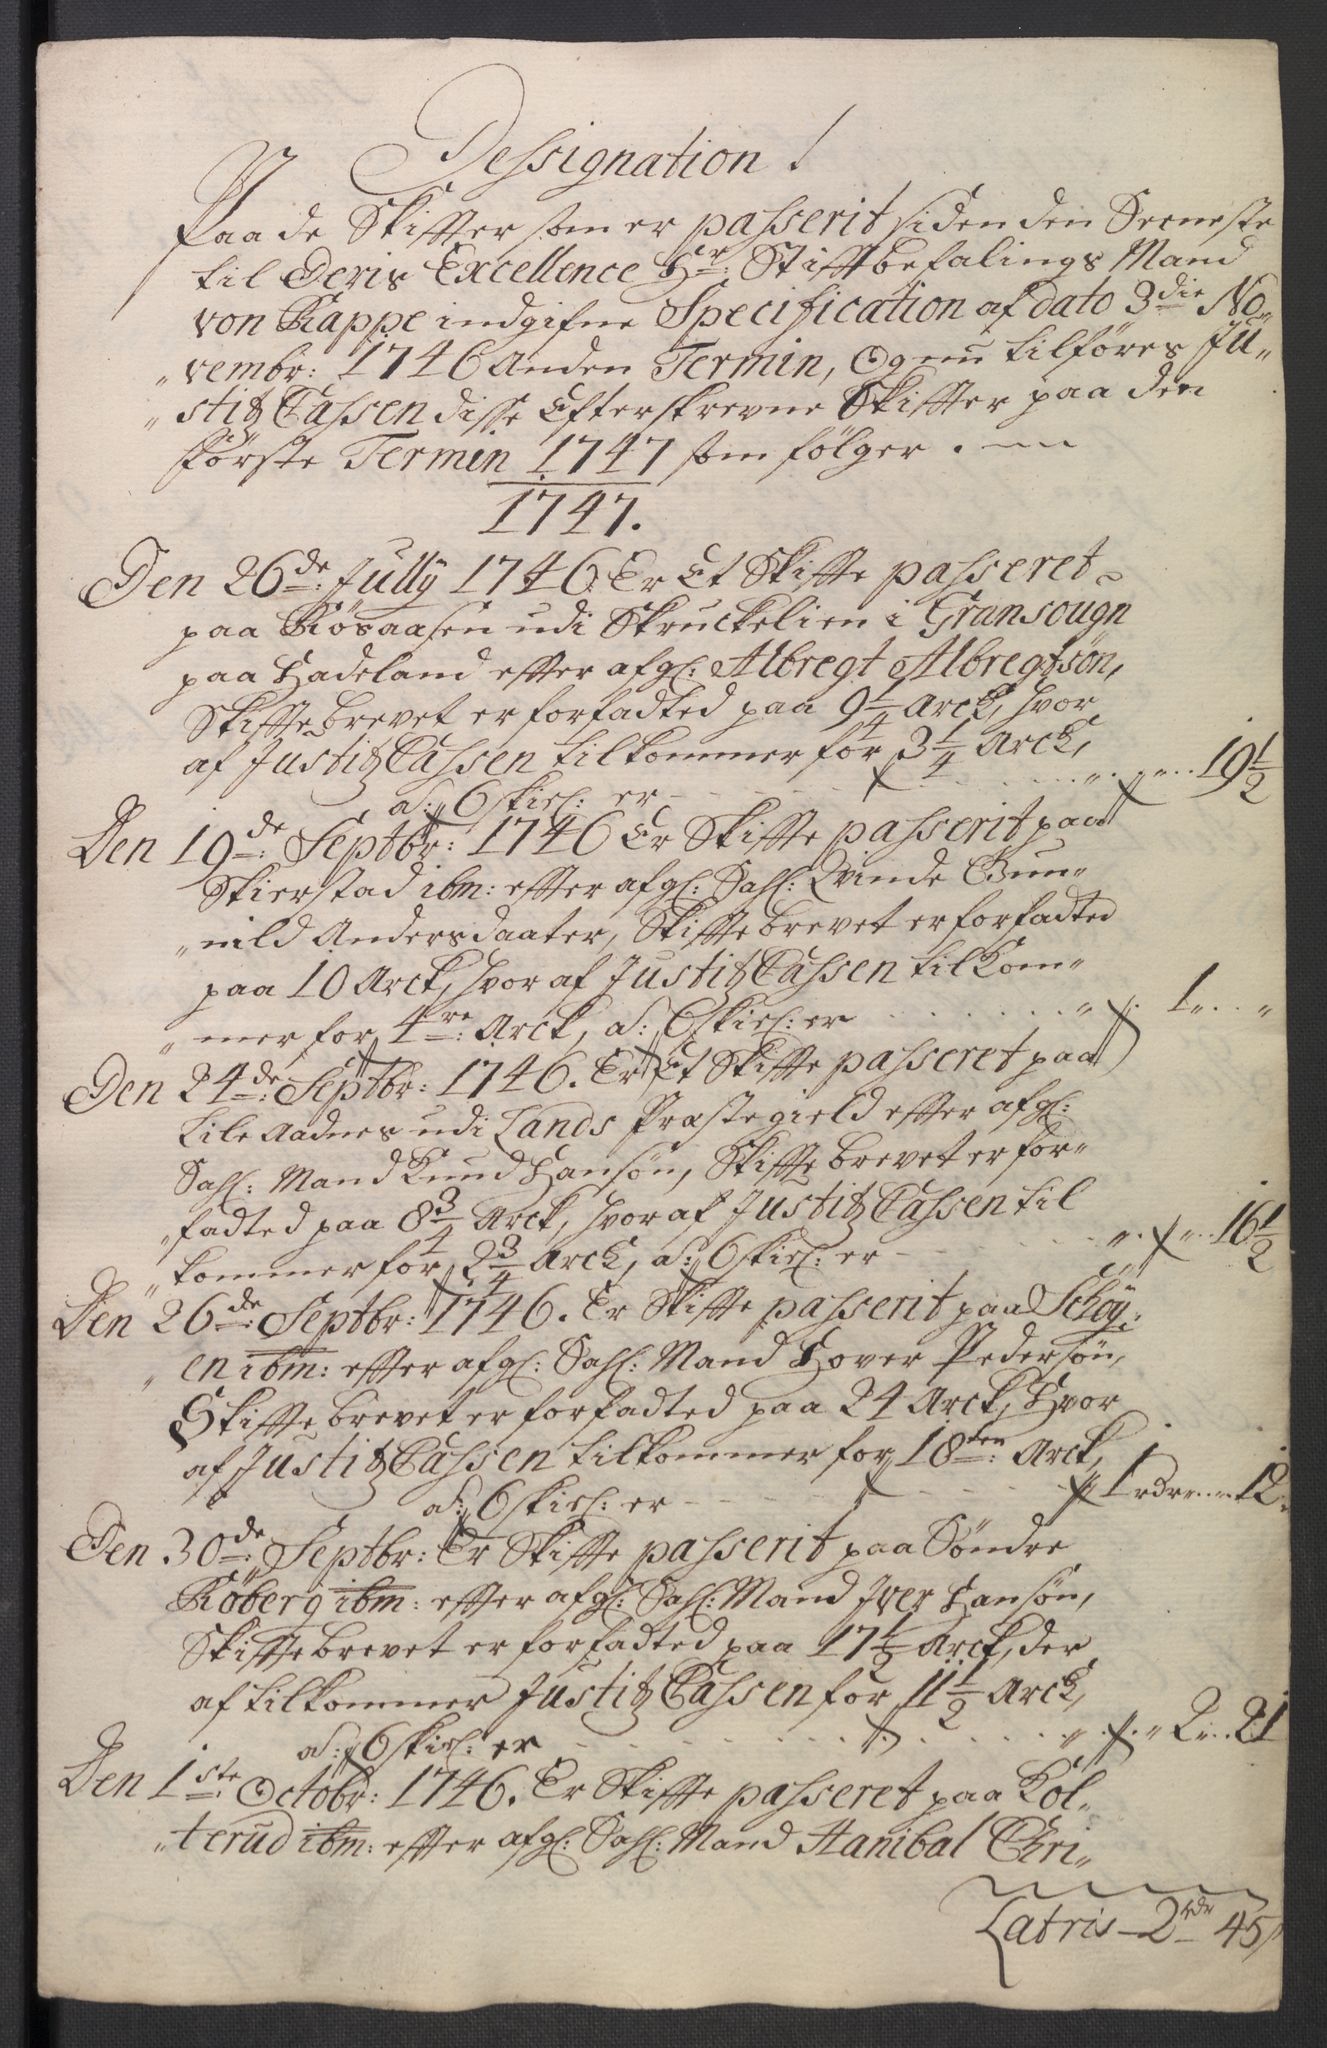 Dessignation
Paa de Skiffter som er passerit siden den Seeneste
til Deris Excellence Hr: Stiftbefalings Mand
von Rappe indgifne Specification af dato 3die No„
„vembr: 1746 Anden Termin, Og nu tilföres Ju„
„stitz Cassen disse Efterskrevne Skiffter paa den
förste Termin 1747 som fölger.
1747.
Den 26de: Jully 1746. Er Et Skiffte passeret
paa Rösaasen udi Skruckelien i Gransougn
paa Hadeland effter afgl: Albregt Albregtsön,
Skifftebrevet er forfadted paa 9 1/4 Arck, hvor
af Justitz Cassen tilkommer for 3 1/4 Arck,
a: 6 skiel: er „ „ 19 1/2
Den 19de: Septbr: 1746 Er Skiffte passerit paa
Skierstad ibm: effter afgl: Sahl: Qvinde Gun„
„nild Andersdaater, Skifftebrevet er forfadted
paa 10 Arck, hvor af Justitz Cassen tilkom„
„mer for 4re: Arck, a: 6 skiel: er „ 1 „
Den 24de: Septbr: 1746. Er Et Skiffte passeret paa
Lile Aadnes udi Lands Præstegield effter afgl:
Sahl: Mand Knud Hansön, Skifftebrevet er for„
„fadted paa 8 3/4 Arck, hvor af Justitz Cassen til
„kommer for 2 3/4 Arck, a: 6 skiel: er „ „ 16 1/2
Den 26de: Septbr: 1746. Er Skiffte passerit paa Schöy„
„en ibm: effter afgl: Sahl: Mand Hover Pedersön,
Skifftebrevet er forfadted paa 24 Arck, Hvor
af Justitz Cassen tilkommer for 18ten: Arck,
a: 6 skiel: er 1 rdr „ 12
Den 30de: Septbr: Er Skiffte passerit paa Söndre
Köberg ibm: effter afgl: Sahl: Mand Iver Hansön,
Skifftebrevet er forfadted paa 17 1/2 Arck, der
af tilkommer Justitz Cassen for 11 1/2 Arck,
a: 6 skiel: er „ 2 21
Den 1ste: Octobr: 1746. Er Skiffte passeret paa Kol„
„terud ibm: effter afgl: Sahl: Mand Hanibal Chri„
Latris 2rdr 45